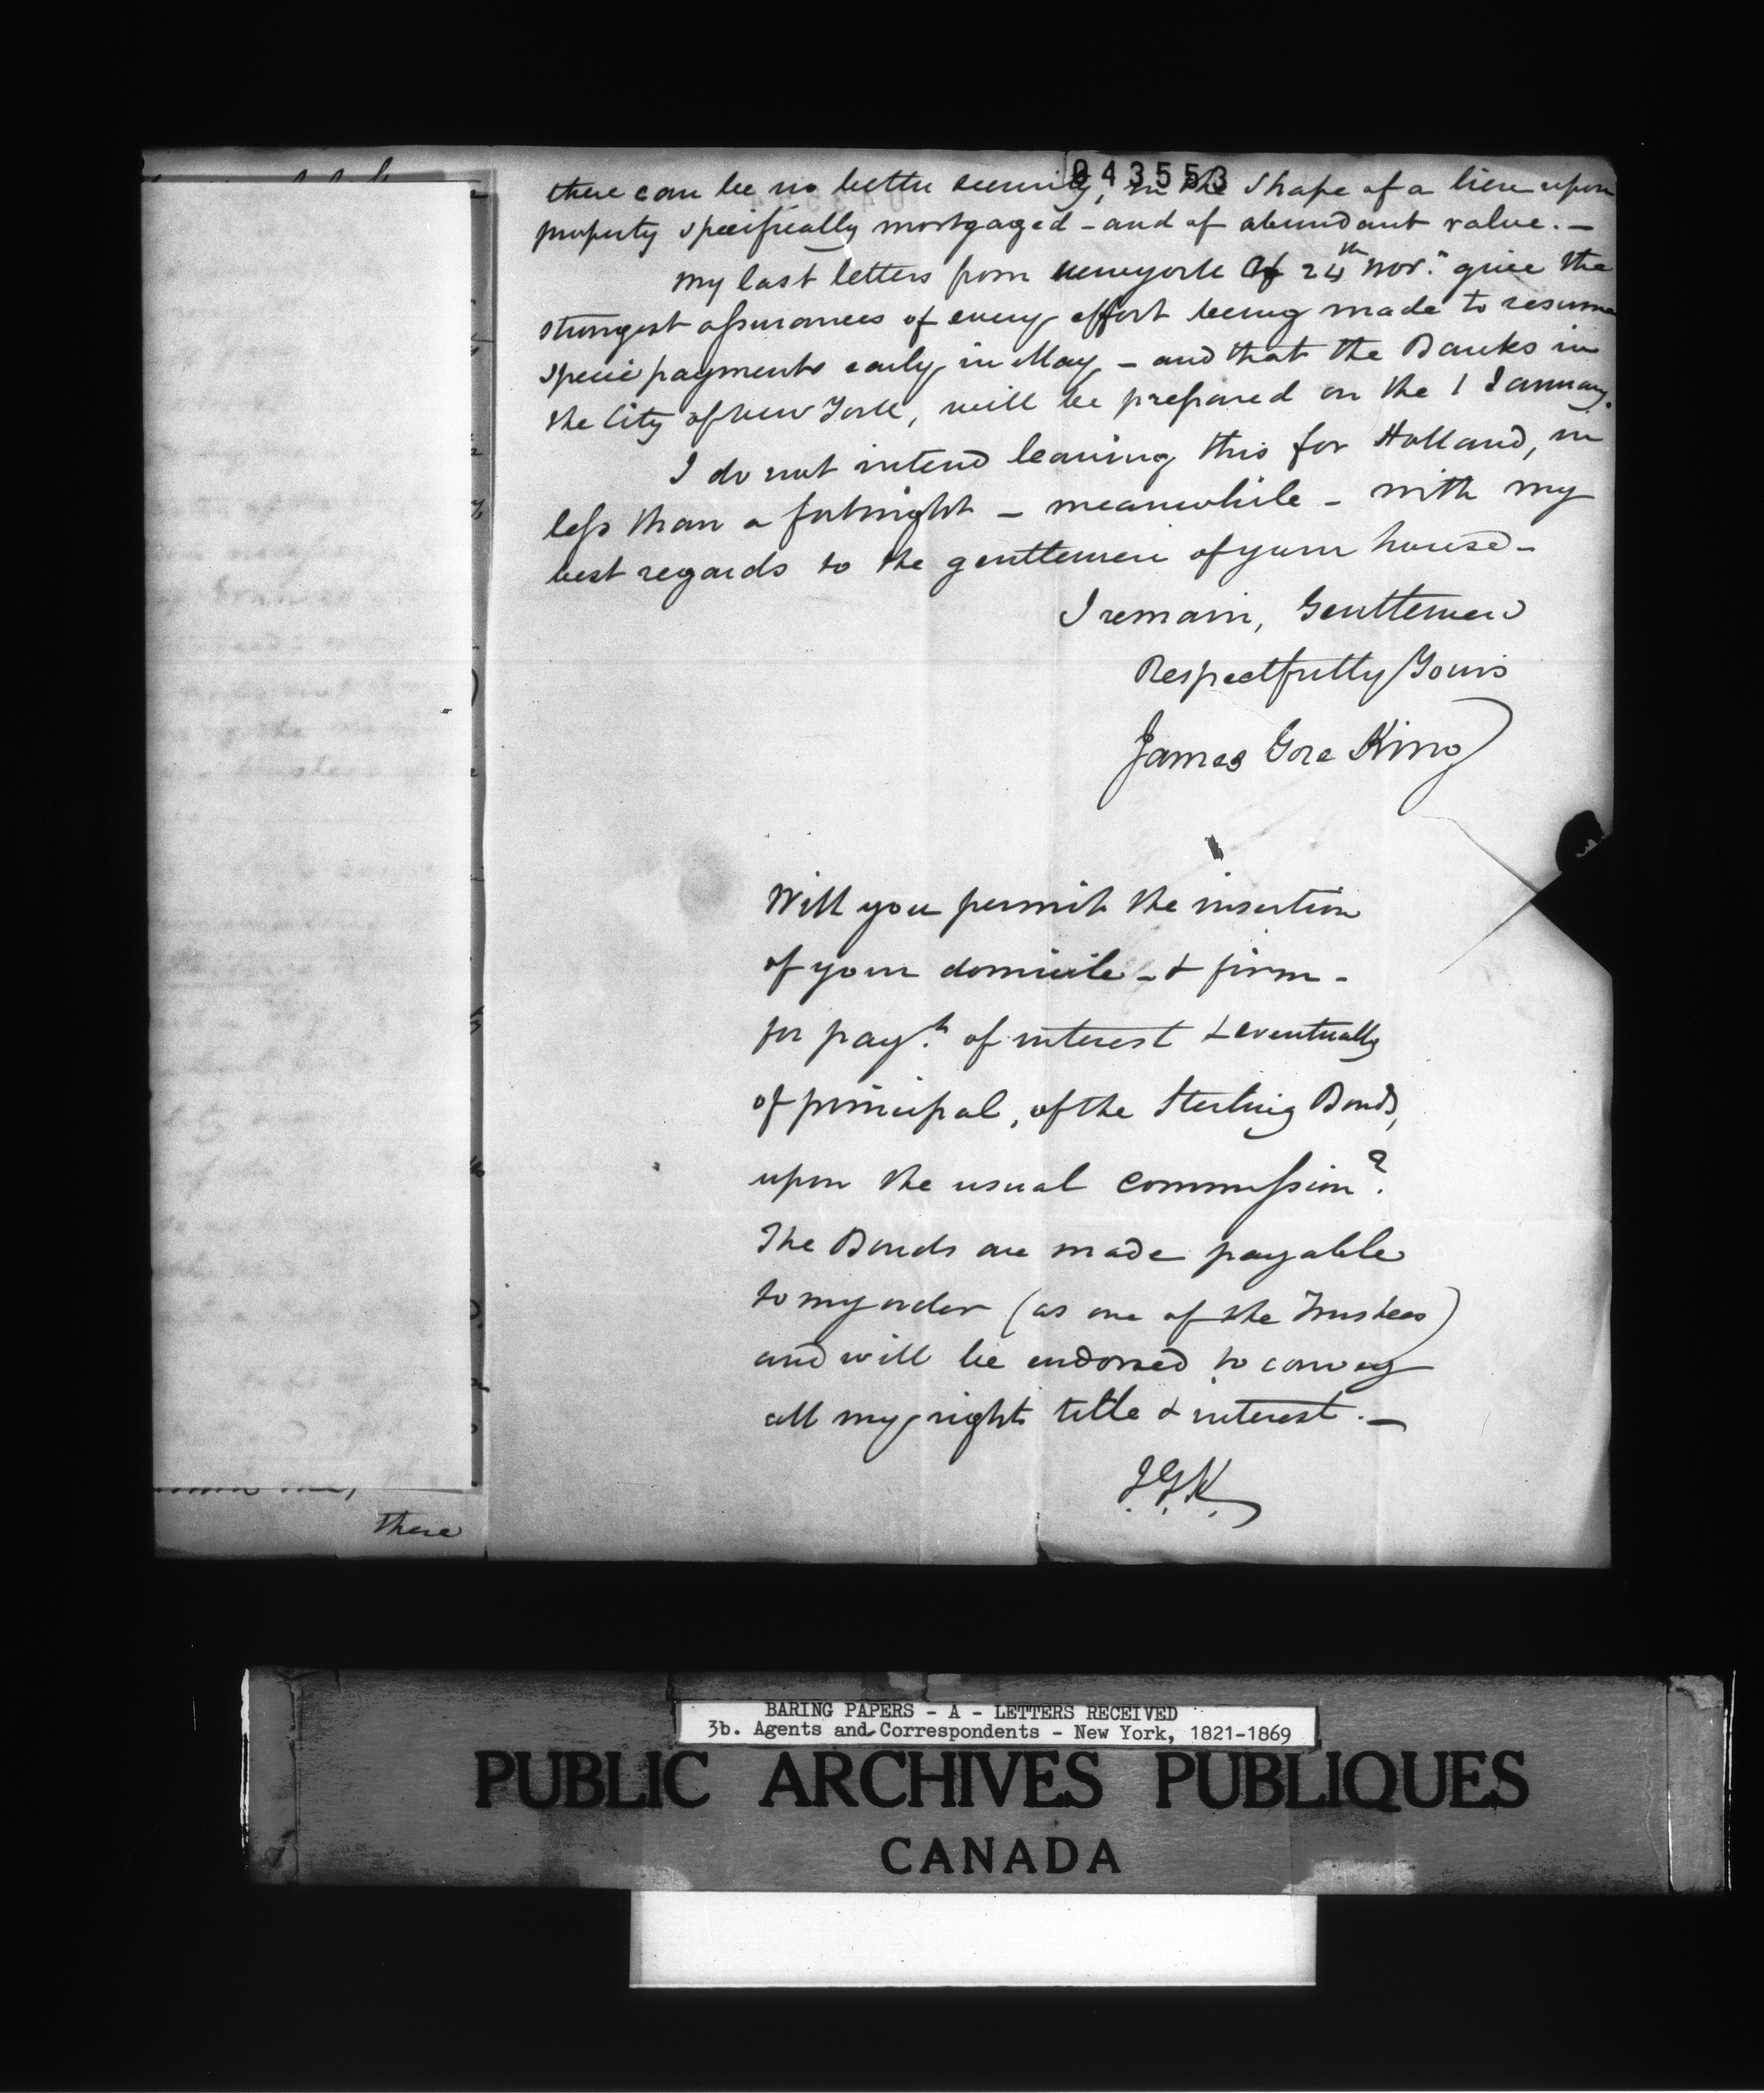 043553
there can be no better security, in the shape of a lien upon
property specifically mortgaged - and of abundant value. -
My last letters from Newyork of 24th Novr. give the
strongest assurances of every effort being made to resume
specie payments early in May - and that the Banks in
the City of New York, will be prepared on the 1 January.
I do not intend leaving this for Holland, in
less than a fortnight - meanwhile - with my
best regards to the gentlemen of your house -
I remain, Gentlemen
Respectfully Yours
James Gore King
Will you permit the insertion
of your domicile - & firm -
for payt. of interest & eventually
of principal, of the Sterling Bonds,
upon the usual commission?
The Bonds are made payable
to my order (as one of the Trustees)
and will be endorsed to convey
all my right title & interest. -
J.G.K.
there
BARING PAPERS - A - LETTERS RECEIVED
3b. Agents and Correspondents - New York, 1821-1869
PUBLIC ARCHIVES PUBLIQUES
CANADA